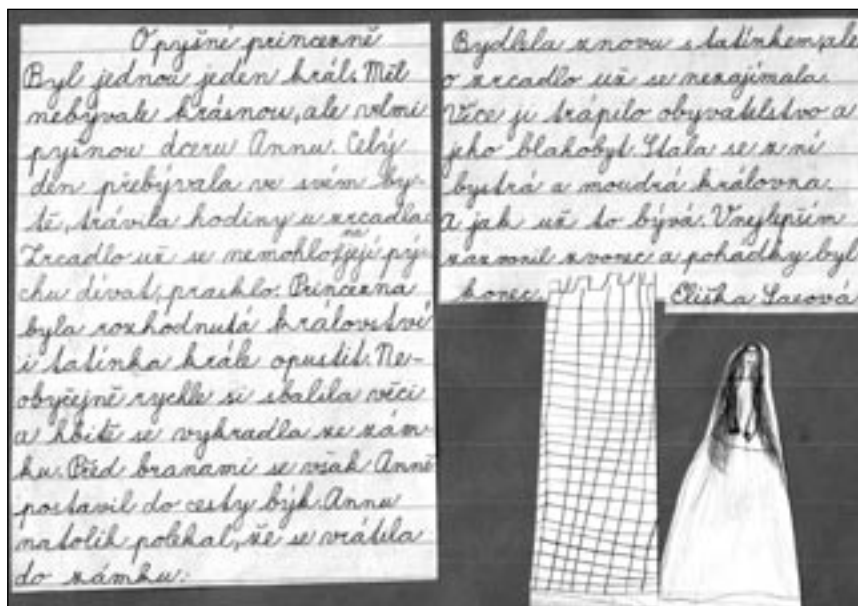 O pyšné princezně
Byl jednou jeden král. Měl
nebývale krásnou, ale velmi
pyšnou dceru Annu. Celý
den přebývala ve svém by-
tě, trávila hodiny u zrcadla.
Zrcadlo už se nemohlo na její pý-
chu dívat, prasklo. Princezna
byla rozhodnutá království
i tatínka krále opustit. Ne-
obyčejně rychle si sbalila věci
a hbitě se vykradla ze zám-
ku. Před branami se však Anně
postavil do cesty býk. Annu
natolik polekal, že se vrátila
do zámku.
Bydlela znovu s tatínkem, ale
o zrcadlo už se nezajímala.
Více ji trápilo obyvatelstvo a
jeho blahobyt. Stala se z ní
bystrá a moudrá královna.
A jak už to bývá. V nejlepším
zazvonil zvonec a pohádky byl
konec.
Eliška